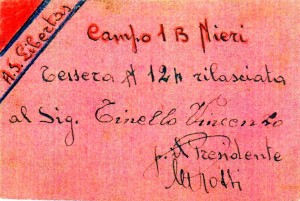 A.S. Libertas
Campo 1 B Nieri
Tessera N 124 rilasciata
al Sig. Tinello Vincenzo
p. Il Presidente